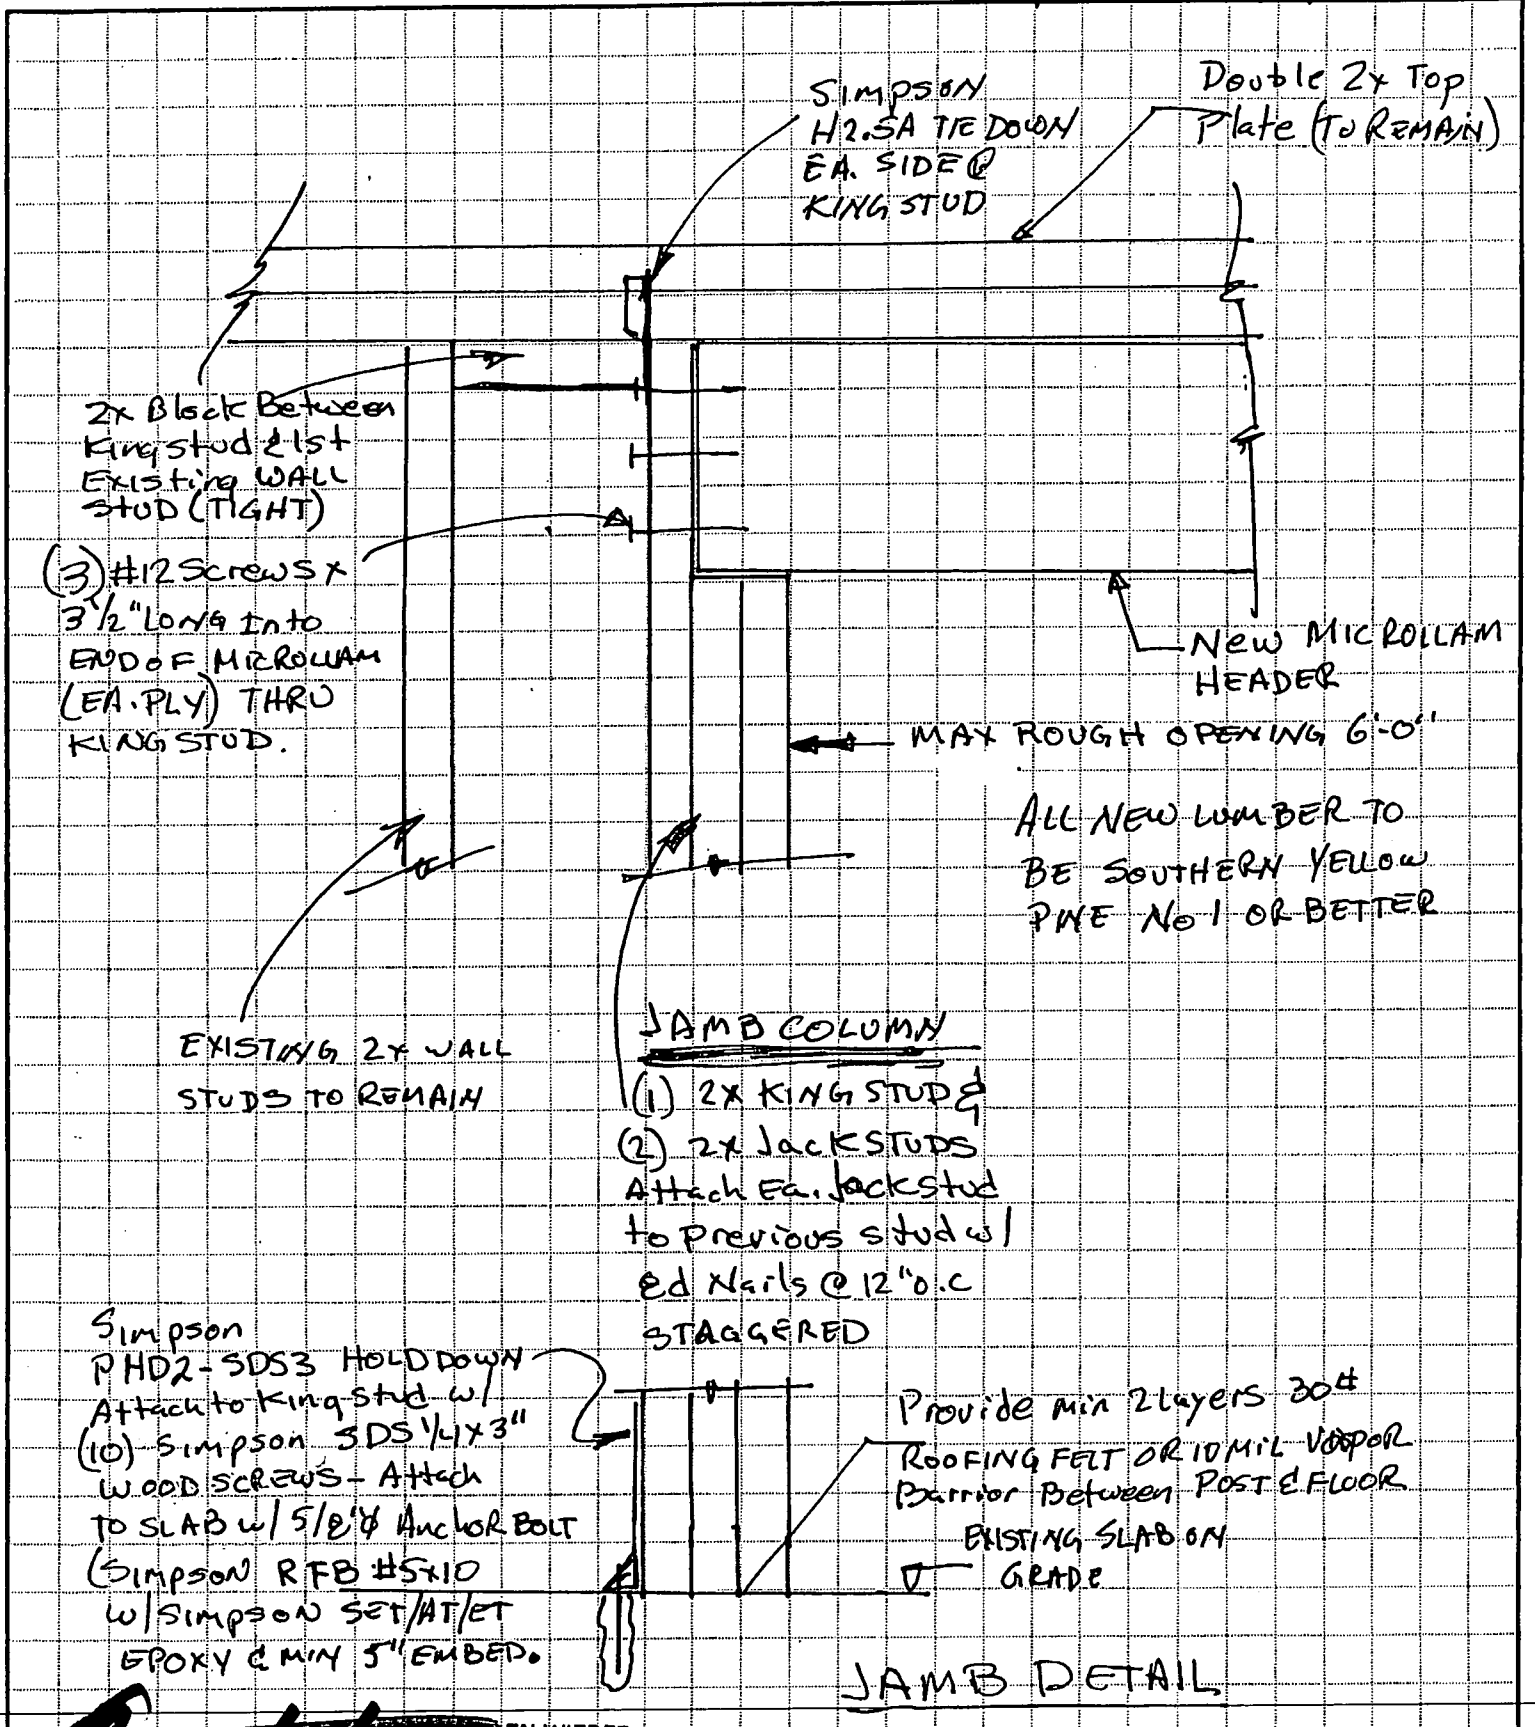 Simpson
H2.5A TIE DOWN
EA. SIDE @
KING STUD
Double 2x Top
Plate (TO REMAIN)
2x Block Between
King stud & 1st
Existing WALL
STUD (TIGHT)
(3) #12 Screws x
3 1/2" LONG Into
END OF MICROLLAM
(EA. PLY) THRU
KING STUD.
New MICROLLAM
HEADER
MAX ROUGH OPENING 6'-0"
ALL NEW LUMBER TO
BE SOUTHERN YELLOW
PINE No 1 OR BETTER
EXISTING 2x WALL
STUDS TO REMAIN
JAMB COLUMN
(1) 2x KING STUD &
(2) 2x Jack STUDS
Attach Ea. Jack stud
to previous stud w/
8d Nails @ 12" o.c
STAGGERED
Simpson
PHD2-SDS3 HOLD DOWN
Attach to King stud w/
(10) Simpson SDS 1/4 x 3"
WOOD SCREWS - Attach
TO SLAB w/ 5/8"φ Anchor BOLT
(Simpson RFB #5x10
w/ SIMPSON SET/AT/ET
EPOXY & MIN 5" EMBED.
Provide min 2 Layers 30#
ROOFING FELT OR 10 MIL VAPOR
Barrior Between POST & FLOOR
EXISTING SLAB ON
GRADE
JAMB DETAIL